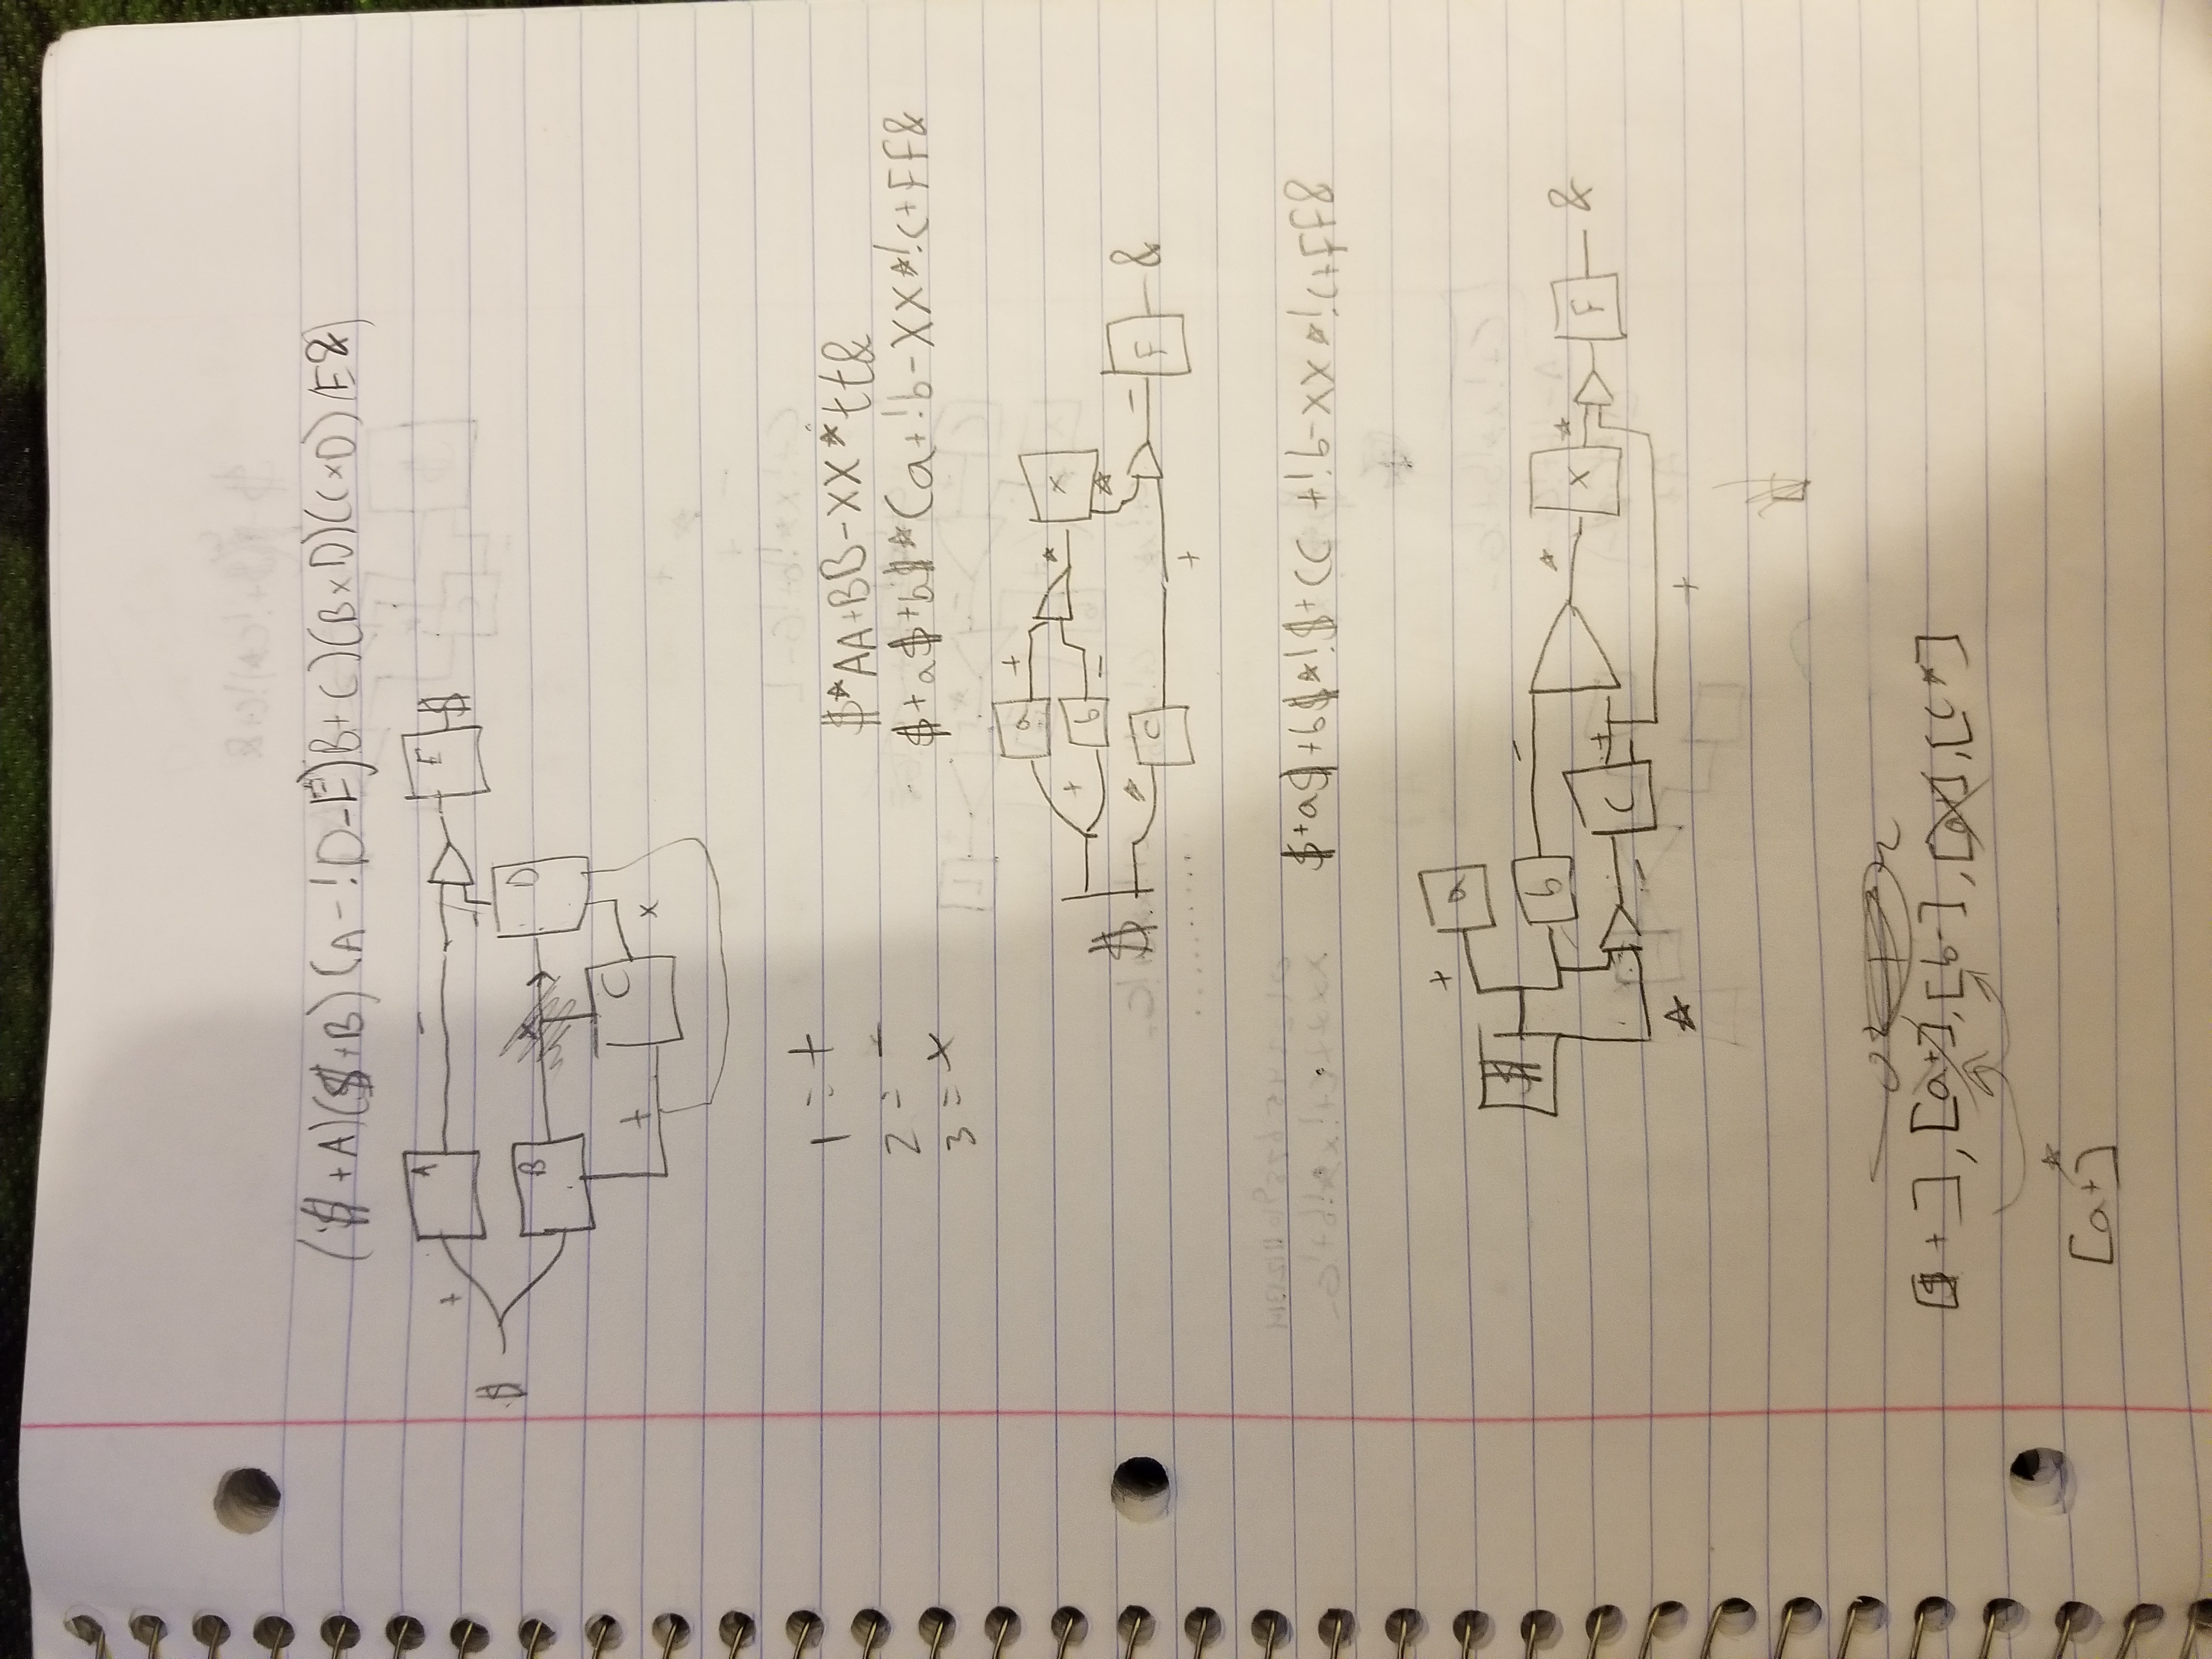 ($+A)($+B)(A-!D-E)B+C)(BxD)(CxD)(E&)
+ A - E $
$
B D
+ C x
1 = +
2 = -
3 = x
$*AA+BB-XX*tt&
$+a$+b$*Ca+!b-XX*!c+FF&
a + * x
+ b -
$ * C * - F &
+
$+a$+b$*!$+CC+!b-XX*!c+FF&
+ a
$ b - * X * F &
- C +
* +
[$+], [a+], [b-], [a], [c*]
*
[a+]